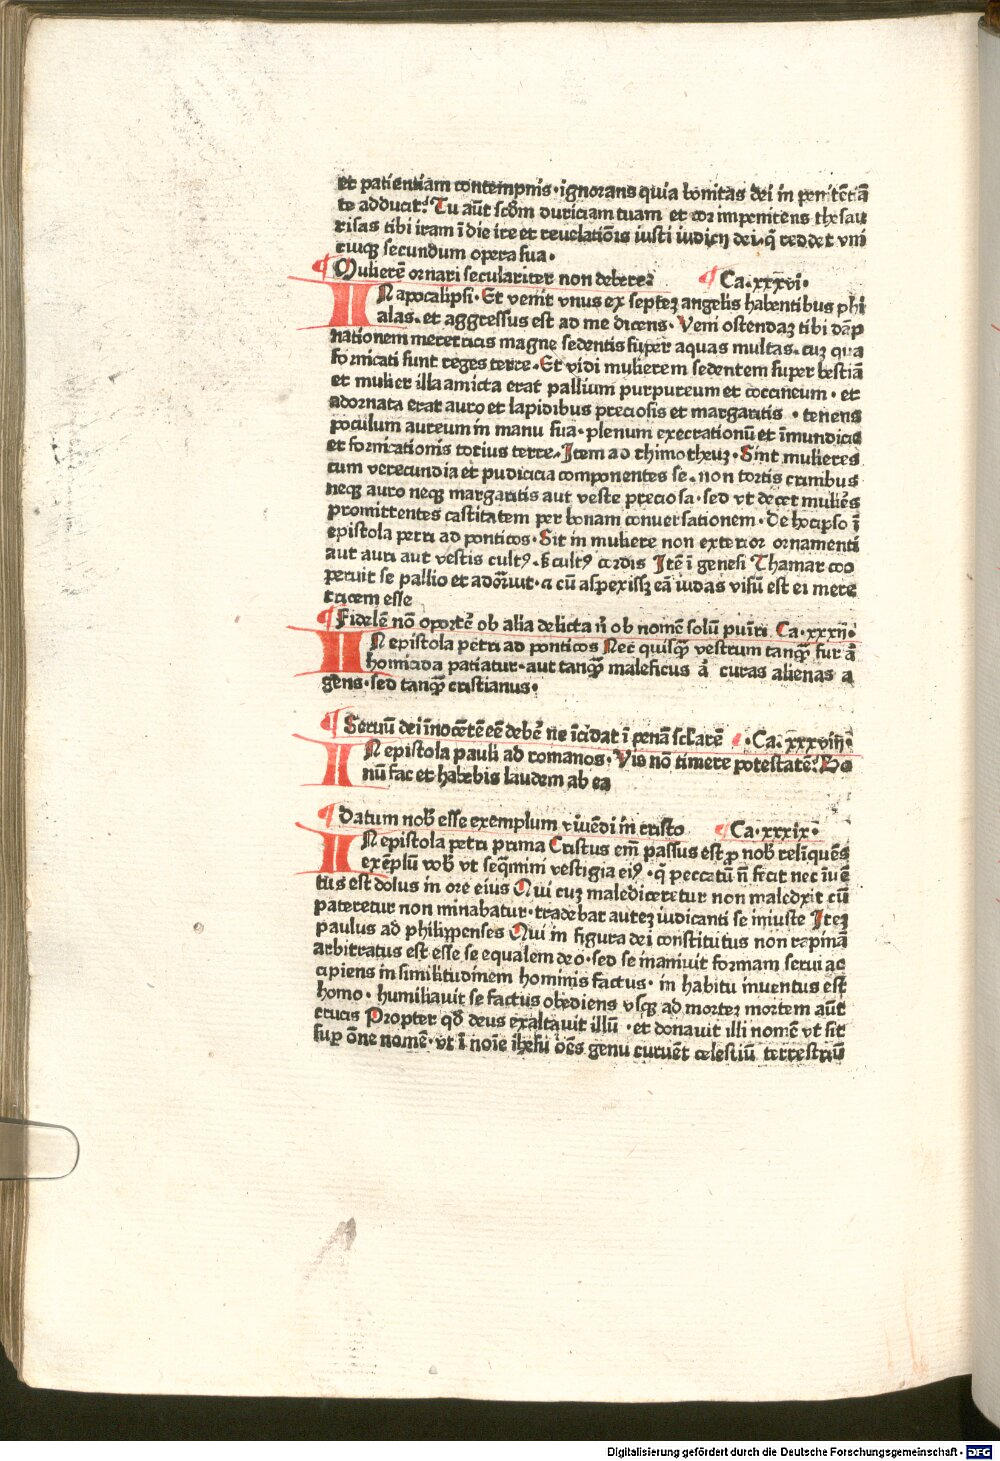 et patientiam contempnis·ignorans quia bonitas dei in penitētiā
te adducit? Tu aūt scd̄m duriciam tuam et cor impenitens thesau
risas tibi iram ī die ire et reuelatiōis iusti iudicij dei·q̄ reddet vni
cuiqꝫ secundum opera sua·
¶ Mulierē ornari seculariter non debere? ¶ Ca·xxxvi·
IN apocalipsi· Et venit vnus ex septeꝫ angelis habentibus phi
alas·et aggressus est ad me dicens· Veni ostendaꝫ tibi dāp
nationem meretricis magne sedentis super aquas multas·cuꝫ qua
fornicati sunt reges terre·Et vidi mulierem sedentem super bestiā
et mulier illa amicta erat pallium purpureum et coccineum· et
adornata erat auro et lapidibus preciosis et margaritis · tenens
poculum aureum in manu sua·plenum execrationū et īmundicie
et fornicationis totius terre·Item ad thimotheuꝫ·Sint mulieres
cum verecundia et pudicicia componentes se·non tortis crinibus
neqꝫ auro neqꝫ margaritis aut veste preciosa·sed vt decet muliēs
promittentes castitatem per bonam conuersationem·De hocipso ī
epistola petri ad ponticos·Sit in muliere non exterior ornamenti
aut auri aut vestis cultꝰ·sꝫ cultꝰ cordis Itē ī genesi Thamar coo
peruit se pallio et adōrīuit·a cū aspexissꝫ eā iudas visū est ei mere
tricem esse
¶ Fidelē nō oportē ob alia delicta n̄ ob nomē solū punīri Ca·xxxij·
IN epistola petri ad ponticos Nec quisqꝫ vestrum tanqꝫ fur ā
homicida patiatur·aut tanqꝫ maleficus ā curas alienas a
gens·sed tanqꝫ cristianus·
¶ Seruū dei īnocētē eē debē ne īcidat ī penā sclārē ¶·Ca·xxxviij·
IN epistola pauli ad romanos·Vis nō timere potestatē? Bo
nū fac et habebis laudem ab ea
¶ Datum nob̄ esse exemplum viuēdi in cristo ¶ Ca·xxxix·
IN epistola petri prima Cristus em̄ passus est p̱ nob̄ relīquēs
exēplū vob̄ vt seq̄mini vestigia eiꝰ·q̄ peccatū n̄ fecit nec īuē
tus est dolus in ore eius Qui cuꝫ malediceretur non maledxit cū
pateretur non minabatur·tradebat auteꝫ iudicanti se iniuste Iteꝫ
paulus ad philippenses Qui in figura dei constitutus non rapinā
arbitratus est esse se equalem deo·sed se inaniuit formam serui ac
cipiens in similitudinem hominis factus· in habitu inuentus est
homo· humiliauit se factus obediens vsqꝫ ad morteꝫ mortem aūt
crucis Propter qd̄ deus exaltauit illū ·et donauit illi nomē vt sit
sup̱ ōne nomē·vt ī noīe ihesu ōes genu curuēt celestiū terrestriū
Digitalisierung gefördert durch die Deutsche Forschungsgemeinschaft - DFG